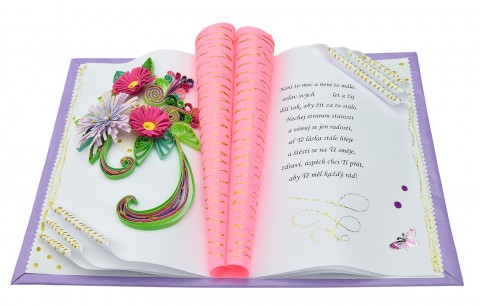 Není to moc a není to málo,
oslav svých let a žij
dál tak, aby žít za to stálo.
Nechej stranou starosti
a věnuj se jen radosti,
ať Tě láska stále hřeje
a štěstí se na Tě směje,
zdraví, úspěch chci Ti přát,
aby Tě měl každý rád!